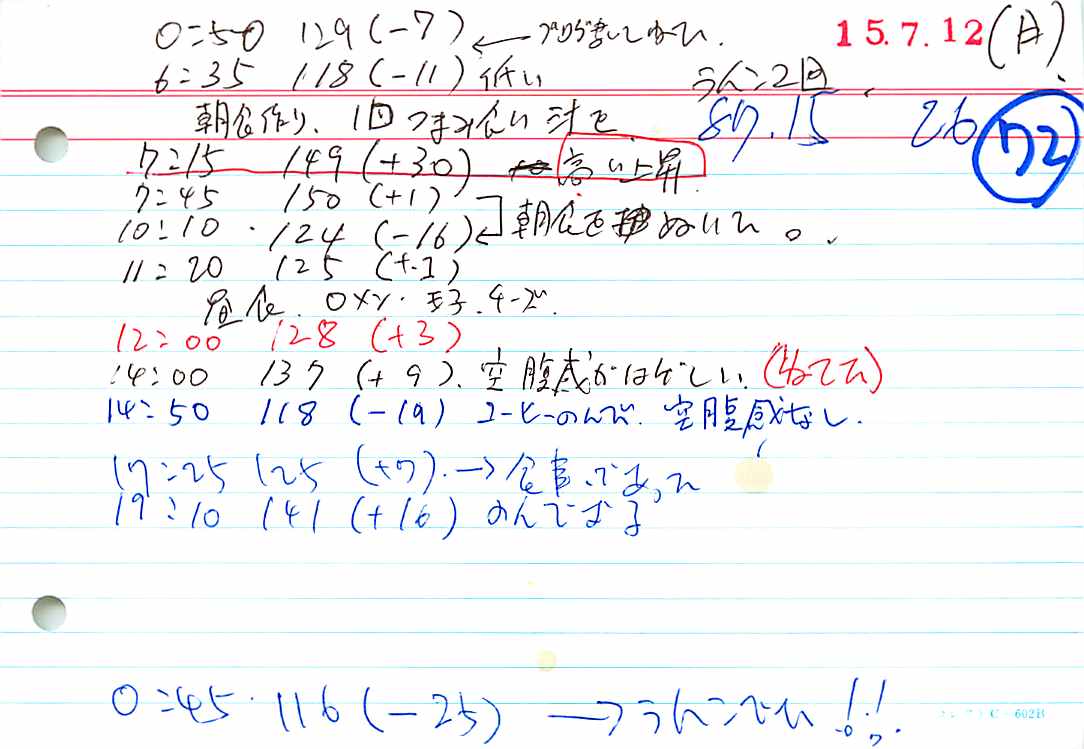 15.7.12 (日)
0:50 129 (-7) ← ブログ書いてねた.
6:35 118 (-11) 低い うんこ2回
朝食作り、1回つまみ食い 汁を 87.15 26 72
7:15 149 (+30) 高い上昇
7:45 150 (+1)
10:10 124 (-16) 朝食をぬいた。
11:20 125 (+1)
昼食. Oメン. 玉子. チーズ.
12:00 128 (+3)
14:00 137 (+9). 空腹感がはげしい. (ねてた)
14:50 118 (-19) コーヒーのんで. 空腹感なし.
17:25 125 (+7). → 食事
19:10 141 (+16) のんでおる
0:45 116 (-25) → うんこでた!!
C-602B